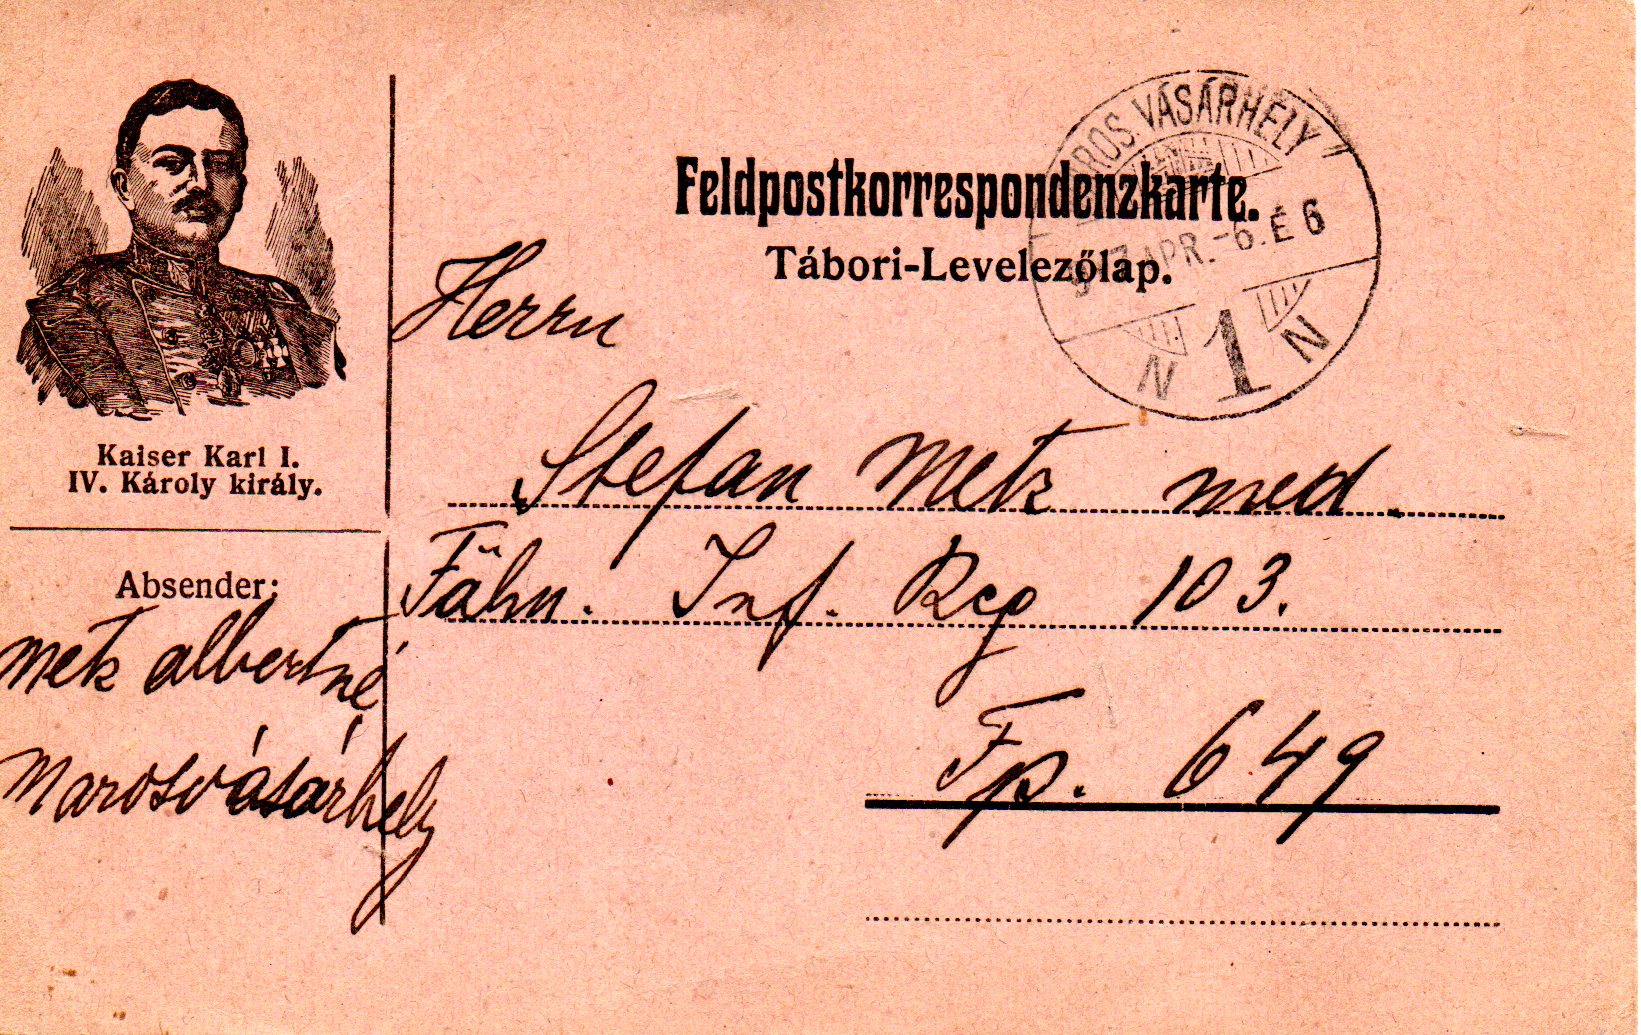 Kaiser Karl I.
IV. Károly király.
Feldpostkorrespondenzkarte.
Tábori-Levelezőlap.
ROS.VÁSÁRHELY
917 APR.-6.É 6
N 1 N
Herrn
Stefan Metz med.
Fähn. Inf. Reg 103.
Fp. 649
Absender:
Metz albertné
Marosvásárhely